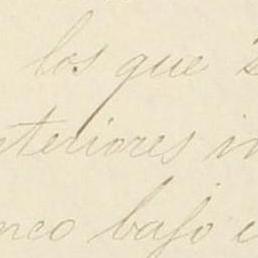 los que
teriores in
nco bajo